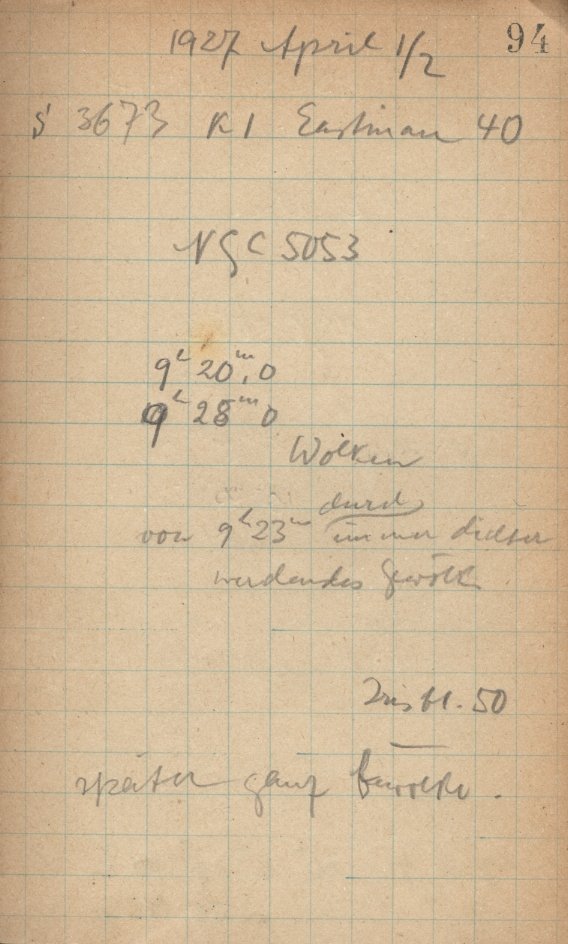 94
1927 April 1/2
S 3673 K 1 Eastman 40
NGC 5053
9h 20m,0
9h 28m 0
Wolken
durch
von 9h 23m immer dichter
werdendes Gewölk
Irisbl. 50
später ganz bewölkt.